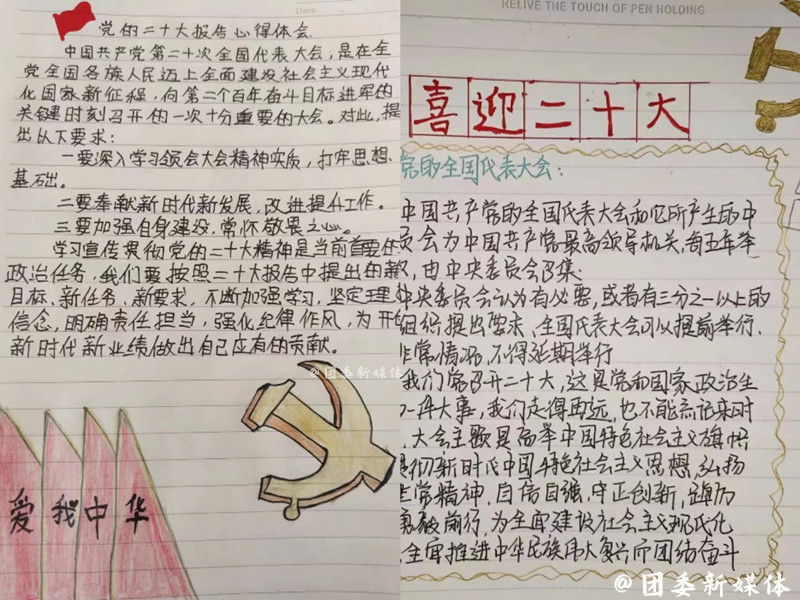 Date
党的二十大报告心得体会
中国共产党第二十次全国代表大会,是在全
党全国各族人民迈上全面建设社会主义现代
化国家新征程,向第二个百年奋斗目标进军的
关键时刻召开的一次十分重要的大会。对此,提
出以下要求:
一要深入学习领会大会精神实质,打牢思想、
基础。
二要奉献新时代新发展,改进提升工作。
三要加强自身建设,常怀敬畏之心。
学习宣传贯彻党的二十大精神是当前首要的
政治任务,我们要按照二十大报告中提出的新
目标、新任务、新要求,不断加强学习,坚定理
信念,明确责任担当,强化纪律作风,为开
新时代新业绩做出自己应有的贡献。
@团委新媒体
爱我中华
RELIVE THE TOUCH OF PEN HOLDING
喜迎二十大
党的全国代表大会:
中国共产党的全国代表大会和它所产生的中
员会为中国共产党最高领导机关,每五年举
,由中央委员会召集.
中央委员会认为有必要,或者有三分之一以上的
组织提出要求,全国代表大会可以提前举行.
非常情况,不得延期举行
我们党召开二十大,这是党和国家政治生
一件大事,我们走得再远,也不能忘记来时
,大会主题是高举中国特色社会主义旗帜
贯彻新时代中国特色社会主义思想,弘扬
建党精神,自信自强,守正创新,踔厉
勇毅前行,为全面建设社会主义现代化
全面推进中华民族伟大复兴而团结奋斗
@团委新媒体